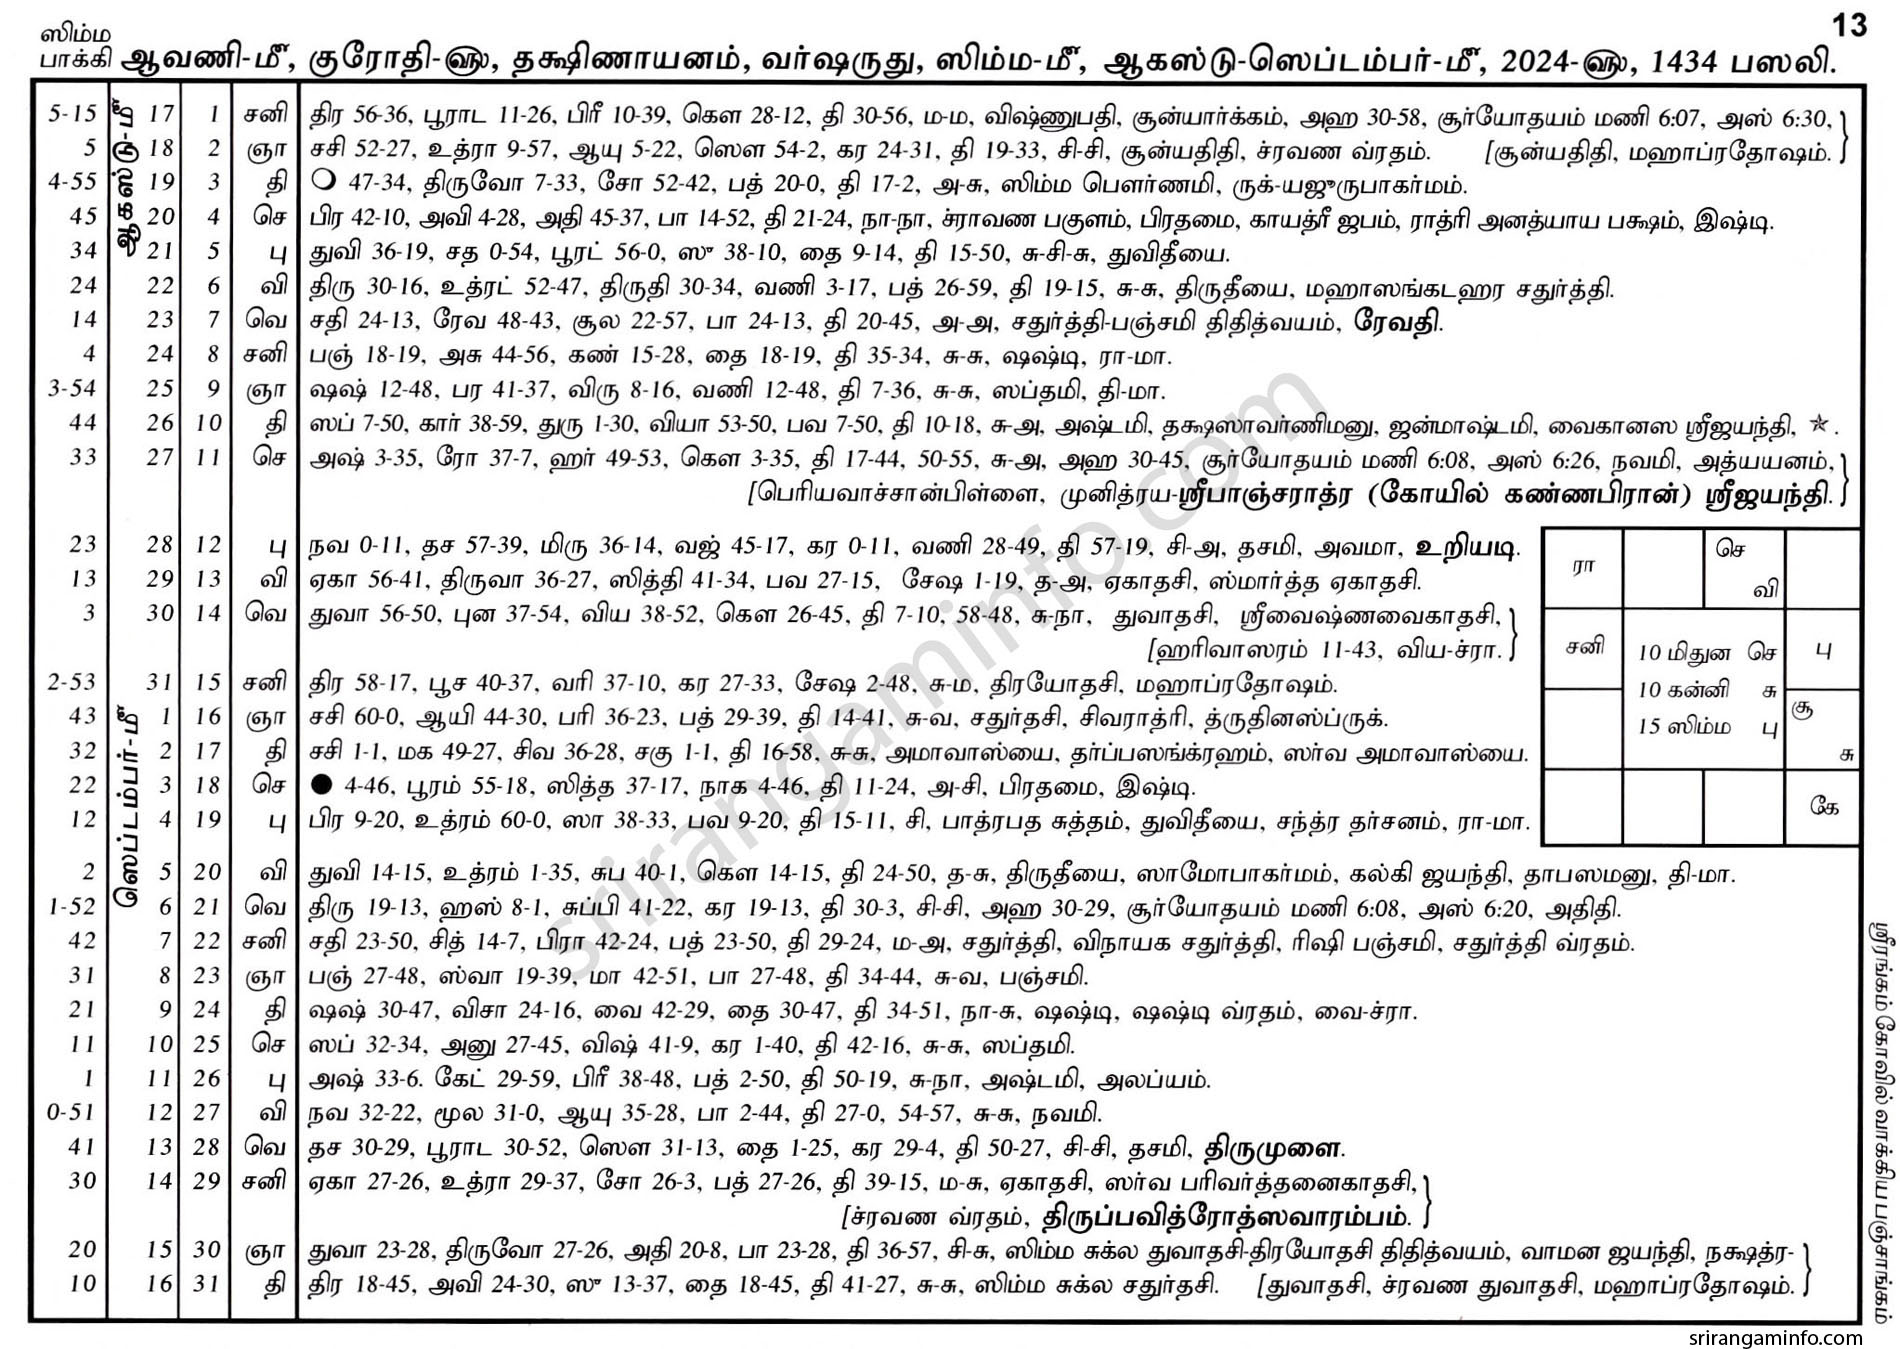 13
ஸிம்ம
பாக்கி ஆவணி-மீ, குரோதி-௵, தக்ஷிணாயனம், வர்ஷருது, ஸிம்ம-மீ, ஆகஸ்டு-ஸெப்டம்பர்-மீ, 2024-௵, 1434 பஸலி.
ஆகஸ்டு-மீ
5-15 17 1 சனி திர 56-36, பூராட 11-26, பிரீ 10-39, கௌ 28-12, தி 30-56, ம-ம, விஷ்ணுபதி, சூன்யார்க்கம், அஹ 30-58, சூர்யோதயம் மணி 6:07, அஸ் 6:30,
5 18 2 ஞா சசி 52-27, உத்ரா 9-57, ஆயு 5-22, ஸௌ 54-2, கர 24-31, தி 19-33, சி-சி, சூன்யதிதி, ச்ரவண வ்ரதம். [சூன்யதிதி, மஹாப்ரதோஷம்.
4-55 19 3 தி ○ 47-34, திருவோ 7-33, சோ 52-42, பத் 20-0, தி 17-2, அ-சு, ஸிம்ம பௌர்ணமி, ருக்-யஜுருபாகர்மம்.
45 20 4 செ பிர 42-10, அவி 4-28, அதி 45-37, பா 14-52, தி 21-24, நா-நா, ச்ராவண பகுளம், பிரதமை, காயத்ரீ ஜபம், ராத்ரி அனத்யாய பக்ஷம், இஷ்டி.
34 21 5 பு துவி 36-19, சத 0-54, பூரட் 56-0, ஸு 38-10, தை 9-14, தி 15-50, சு-சி-சு, துவிதீயை.
24 22 6 வி திரு 30-16, உத்ரட் 52-47, திருதி 30-34, வணி 3-17, பத் 26-59, தி 19-15, சு-சு, திருதீயை, மஹாஸங்கடஹர சதுர்த்தி.
14 23 7 வெ சதி 24-13, ரேவ 48-43, சூல 22-57, பா 24-13, தி 20-45, அ-அ, சதுர்த்தி-பஞ்சமி திதித்வயம், ரேவதி.
4 24 8 சனி பஞ் 18-19, அசு 44-56, கண் 15-28, தை 18-19, தி 35-34, சு-சு, ஷஷ்டி, ரா-மா.
3-54 25 9 ஞா ஷஷ் 12-48, பர 41-37, விரு 8-16, வணி 12-48, தி 7-36, சு-சு, ஸப்தமி, தி-மா.
44 26 10 தி ஸப் 7-50, கார் 38-59, துரு 1-30, வியா 53-50, பவ 7-50, தி 10-18, சு-அ, அஷ்டமி, தக்ஷஸாவர்ணிமனு, ஜன்மாஷ்டமி, வைகானஸ ஸ்ரீஜயந்தி, ☆.
33 27 11 செ அஷ் 3-35, ரோ 37-7, ஹர் 49-53, கௌ 3-35, தி 17-44, 50-55, சு-அ, அஹ 30-45, சூர்யோதயம் மணி 6:08, அஸ் 6:26, நவமி, அத்யயனம்,
[பெரியவாச்சான்பிள்ளை, முனித்ரய-ஸ்ரீபாஞ்சராத்ர (கோயில் கண்ணபிரான்) ஸ்ரீஜயந்தி.
23 28 12 பு நவ 0-11, தச 57-39, மிரு 36-14, வஜ் 45-17, கர 0-11, வணி 28-49, தி 57-19, சி-அ, தசமி, அவமா, உறியடி.
13 29 13 வி ஏகா 56-41, திருவா 36-27, ஸித்தி 41-34, பவ 27-15, சேஷ 1-19, த-அ, ஏகாதசி, ஸ்மார்த்த ஏகாதசி.
3 30 14 வெ துவா 56-50, புன 37-54, விய 38-52, கௌ 26-45, தி 7-10, 58-48, சு-நா, துவாதசி, ஸ்ரீவைஷ்ணவைகாதசி,
[ஹரிவாஸரம் 11-43, விய-ச்ரா.
2-53 31 15 சனி திர 58-17, பூச 40-37, வரி 37-10, கர 27-33, சேஷ 2-48, சு-ம, திரயோதசி, மஹாப்ரதோஷம்.
ஸெப்டம்பர்-மீ
43 1 16 ஞா சசி 60-0, ஆயி 44-30, பரி 36-23, பத் 29-39, தி 14-41, சு-வ, சதுர்தசி, சிவராத்ரி, த்ருதினஸ்ப்ருக்.
32 2 17 தி சசி 1-1, மக 49-27, சிவ 36-28, சகு 1-1, தி 16-58, சு-சு, அமாவாஸ்யை, தர்ப்பஸங்க்ரஹம், ஸர்வ அமாவாஸ்யை.
22 3 18 செ ● 4-46, பூரம் 55-18, ஸித்த 37-17, நாக 4-46, தி 11-24, அ-சி, பிரதமை, இஷ்டி.
12 4 19 பு பிர 9-20, உத்ரம் 60-0, ஸா 38-33, பவ 9-20, தி 15-11, சி, பாத்ரபத சுத்தம், துவிதீயை, சந்த்ர தர்சனம், ரா-மா.
ரா செ வி
சனி 10 மிதுன செ பு
10 கன்னி சு சூ
15 ஸிம்ம பு சு
கே
2 5 20 வி துவி 14-15, உத்ரம் 1-35, சுப 40-1, கௌ 14-15, தி 24-50, த-சு, திருதீயை, ஸாமோபாகர்மம், கல்கி ஜயந்தி, தாபஸமனு, தி-மா.
1-52 6 21 வெ திரு 19-13, ஹஸ் 8-1, சுப்பி 41-22, கர 19-13, தி 30-3, சி-சி, அஹ 30-29, சூர்யோதயம் மணி 6:08, அஸ் 6:20, அதிதி.
42 7 22 சனி சதி 23-50, சித் 14-7, பிரா 42-24, பத் 23-50, தி 29-24, ம-அ, சதுர்த்தி, விநாயக சதுர்த்தி, ரிஷி பஞ்சமி, சதுர்த்தி வ்ரதம்.
31 8 23 ஞா பஞ் 27-48, ஸ்வா 19-39, மா 42-51, பா 27-48, தி 34-44, சு-வ, பஞ்சமி.
21 9 24 தி ஷஷ் 30-47, விசா 24-16, வை 42-29, தை 30-47, தி 34-51, நா-சு, ஷஷ்டி, ஷஷ்டி வ்ரதம், வை-ச்ரா.
11 10 25 செ ஸப் 32-34, அனு 27-45, விஷ் 41-9, கர 1-40, தி 42-16, சு-சு, ஸப்தமி.
1 11 26 பு அஷ் 33-6. கேட் 29-59, பிரீ 38-48, பத் 2-50, தி 50-19, சு-நா, அஷ்டமி, அலப்யம்.
0-51 12 27 வி நவ 32-22, மூல 31-0, ஆயு 35-28, பா 2-44, தி 27-0, 54-57, சு-சு, நவமி.
41 13 28 வெ தச 30-29, பூராட 30-52, ஸௌ 31-13, தை 1-25, கர 29-4, தி 50-27, சி-சி, தசமி, திருமுளை.
30 14 29 சனி ஏகா 27-26, உத்ரா 29-37, சோ 26-3, பத் 27-26, தி 39-15, ம-சு, ஏகாதசி, ஸர்வ பரிவர்த்தனைகாதசி,
[ச்ரவண வ்ரதம், திருப்பவித்ரோத்ஸவாரம்பம்.
20 15 30 ஞா துவா 23-28, திருவோ 27-26, அதி 20-8, பா 23-28, தி 36-57, சி-சு, ஸிம்ம சுக்ல துவாதசி-திரயோதசி திதித்வயம், வாமன ஜயந்தி, நக்ஷத்ர-
10 16 31 தி திர 18-45, அவி 24-30, ஸு 13-37, தை 18-45, தி 41-27, சு-சு, ஸிம்ம சுக்ல சதுர்தசி. [துவாதசி, ச்ரவண துவாதசி, மஹாப்ரதோஷம்.
ஸ்ரீரங்கம் கோவில் வாக்கிய பஞ்சாங்கம்
sriranganinfo.com
srirangaminfo.com